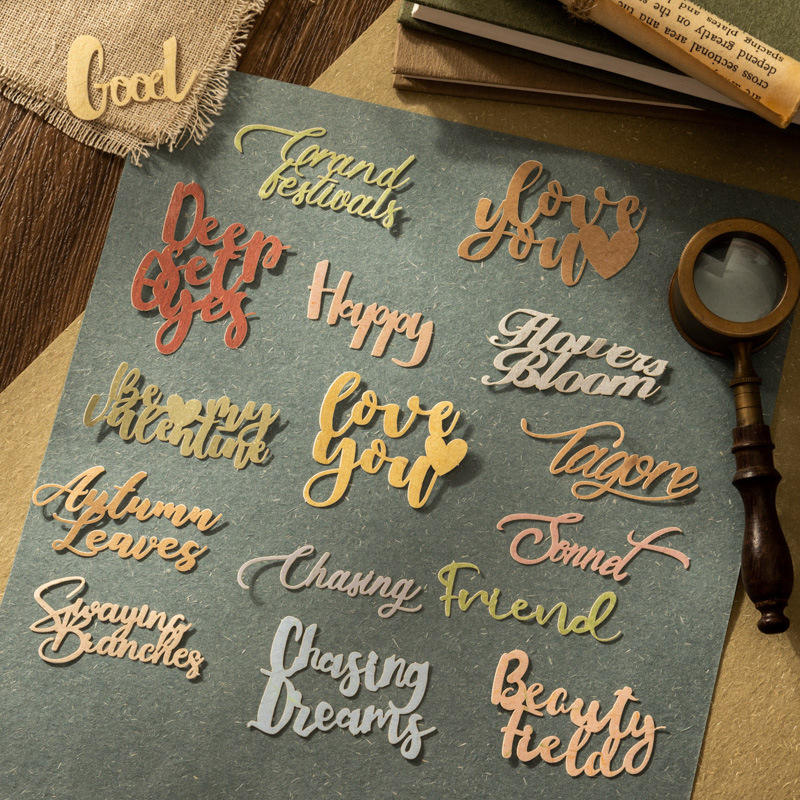 Good
are at
cross sectional area and the
depend greatly on the
spacing plates
Grand
festivals
love
you
Deep
Set
Eyes
Happy
Flowers
Bloom
Be my
Valentine
love
you
Tagore
Autumn
Leaves
Sonnet
Chasing
Friend
Swaying
Branches
Chasing
Dreams
Beauty
Field